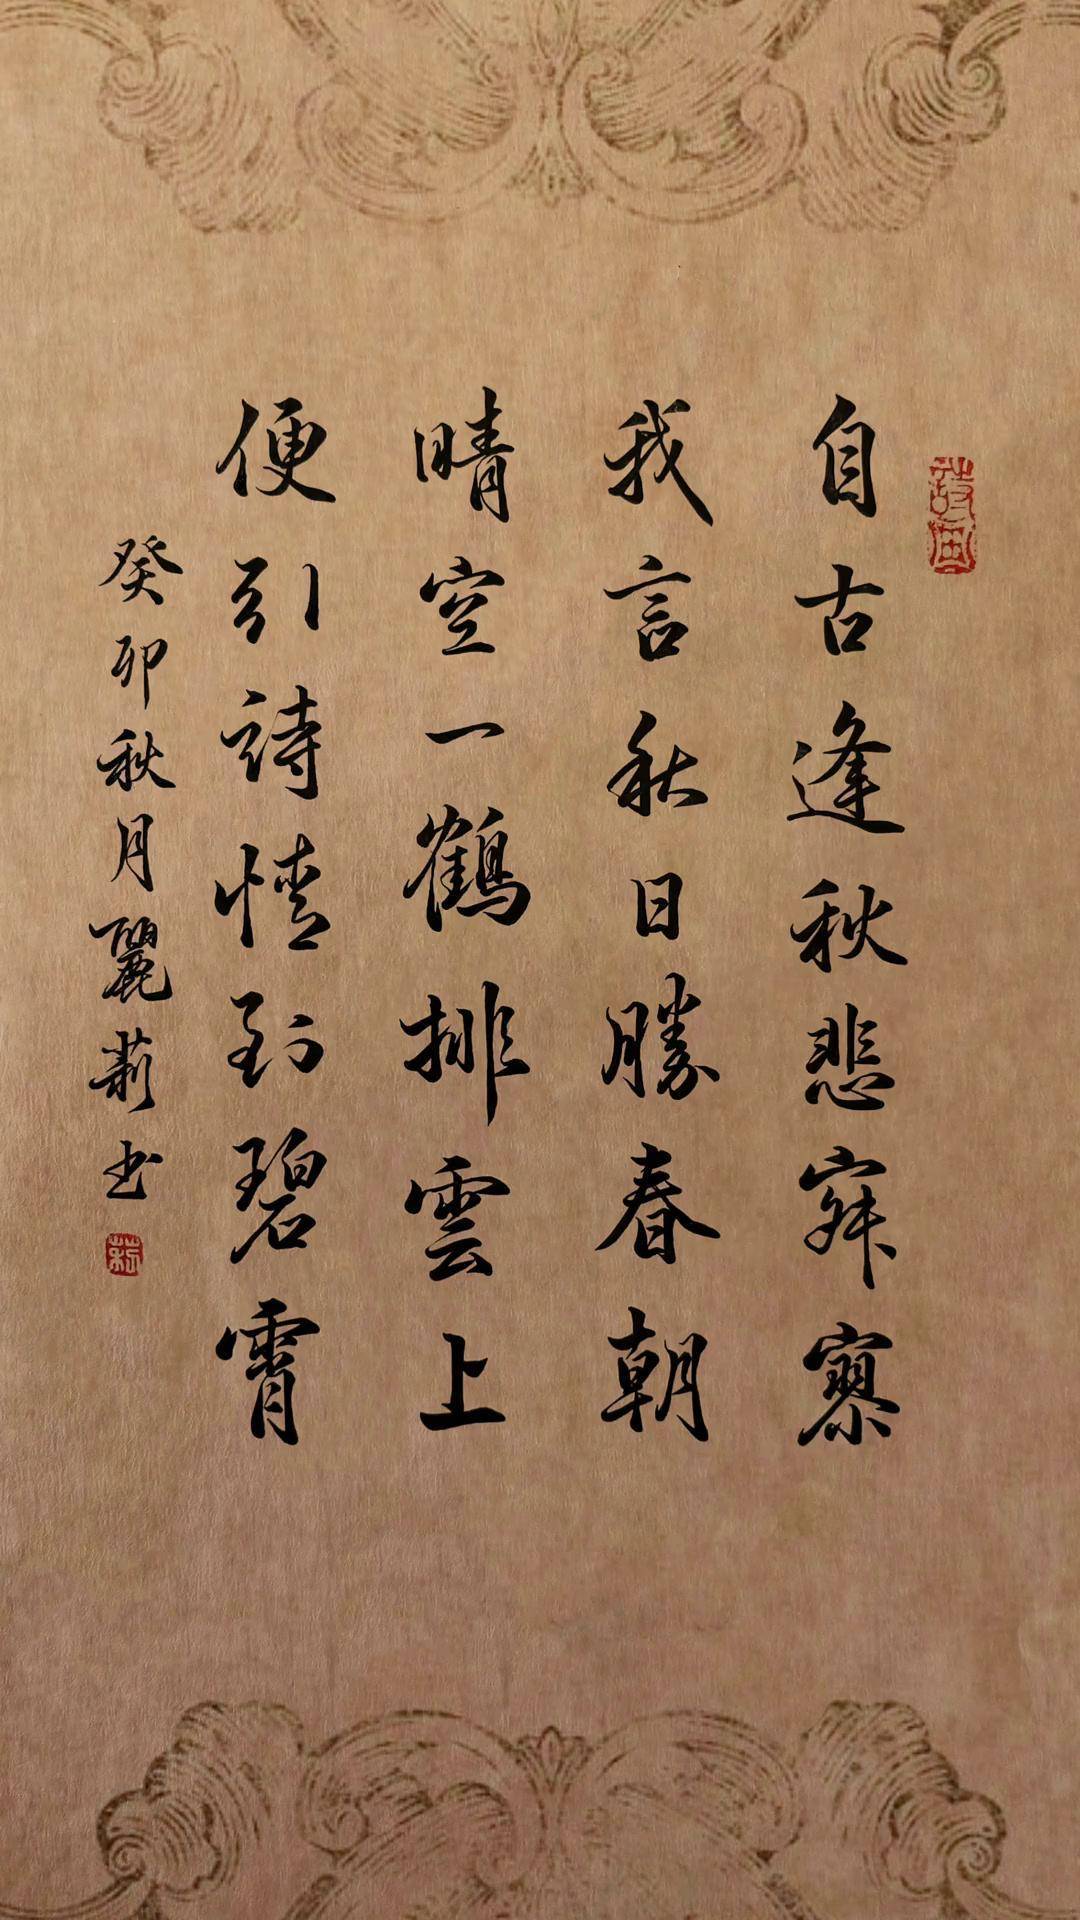 自古逢秋悲寂寥
我言秋日勝春朝
晴空一鶴排雲上
便引詩情到碧霄
癸卯秋月麗莉书